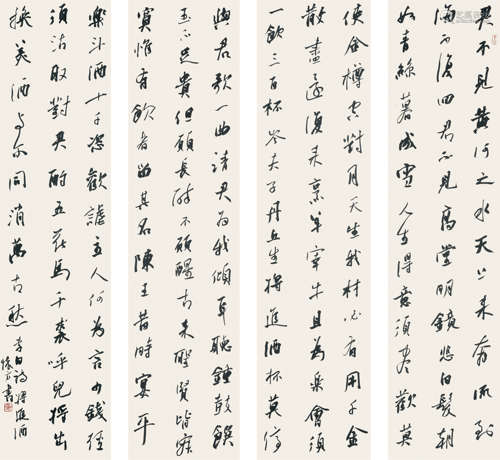 君不見黃河之水天上来奔流到
海不復回君不見高堂明鏡悲白髮朝
如青絲暮成雪人生得意須盡歡莫
使金樽空對月天生我材必有用千金
散盡還復来烹羊宰牛且為樂會須
一飲三百杯岑夫子丹丘生將進酒杯莫停
與君歌一曲請君為我傾耳聽鍾鼓饌
玉不足貴但願長醉不願醒古来聖賢皆寂
寞惟有飲者留其名陳王昔時宴平
樂斗酒十千恣歡謔主人何為言少錢徑
須沽取對君酌五花馬千裘呼兒將出
換美酒与尔同消萬古愁 李白詩將進酒
書